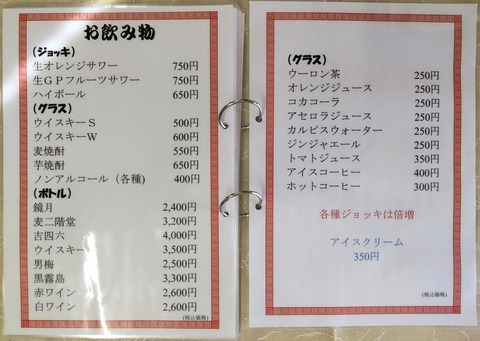 お飲み物
(ジョッキ)
生オレンジサワー 750円
生GPフルーツサワー 750円
ハイボール 650円
(グラス)
ウイスキーS 500円
ウイスキーW 600円
麦焼酎 550円
芋焼酎 650円
ノンアルコール(各種) 400円
(ボトル)
鏡月 2,400円
麦二階堂 3,200円
吉四六 4,000円
ウイスキー 3,500円
男梅 2,500円
黒霧島 3,300円
赤ワイン 2,600円
白ワイン 2,600円
(税込価格)
(グラス)
ウーロン茶 250円
オレンジジュース 250円
コカコーラ 250円
アセロラジュース 250円
カルピスウォーター 250円
ジンジャエール 250円
トマトジュース 350円
アイスコーヒー 400円
ホットコーヒー 300円
各種ジョッキは倍増
アイスクリーム
350円
(税込価格)